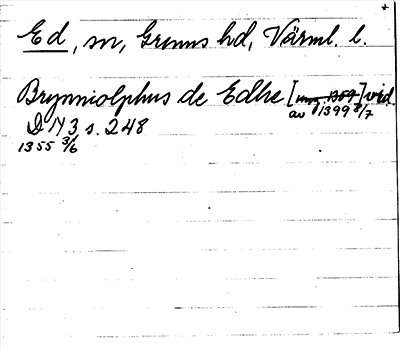 Ed, sn, Grums hd, Värml. l.
Brynniolphus de Edhe [ ] vid.
av 1399 8/7
D IV 3 s. 248
1355 3/6